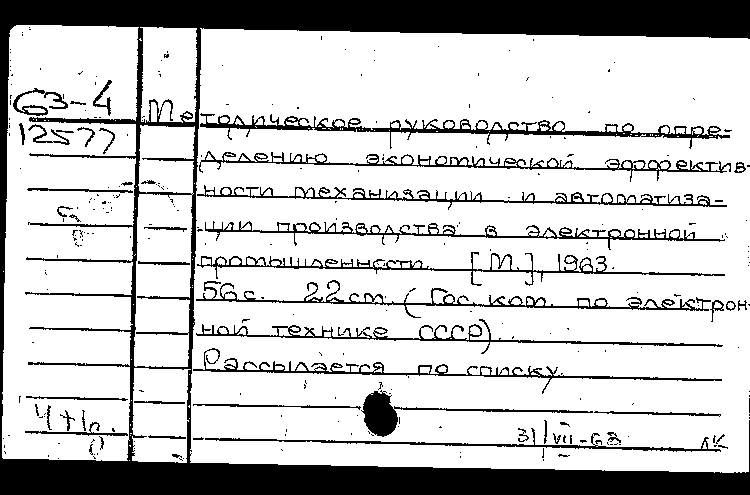 63-4
12577
Методическое руководство по опре-
делению экономической эффектив-
ности механизации и автоматиза-
ции производства в электронной
промышленности. [М.], 1963.
56 с. 22 см. (Гос. ком. по электрон-
ной технике СССР).
Рассылается по списку.
31/VII-63 ЛК